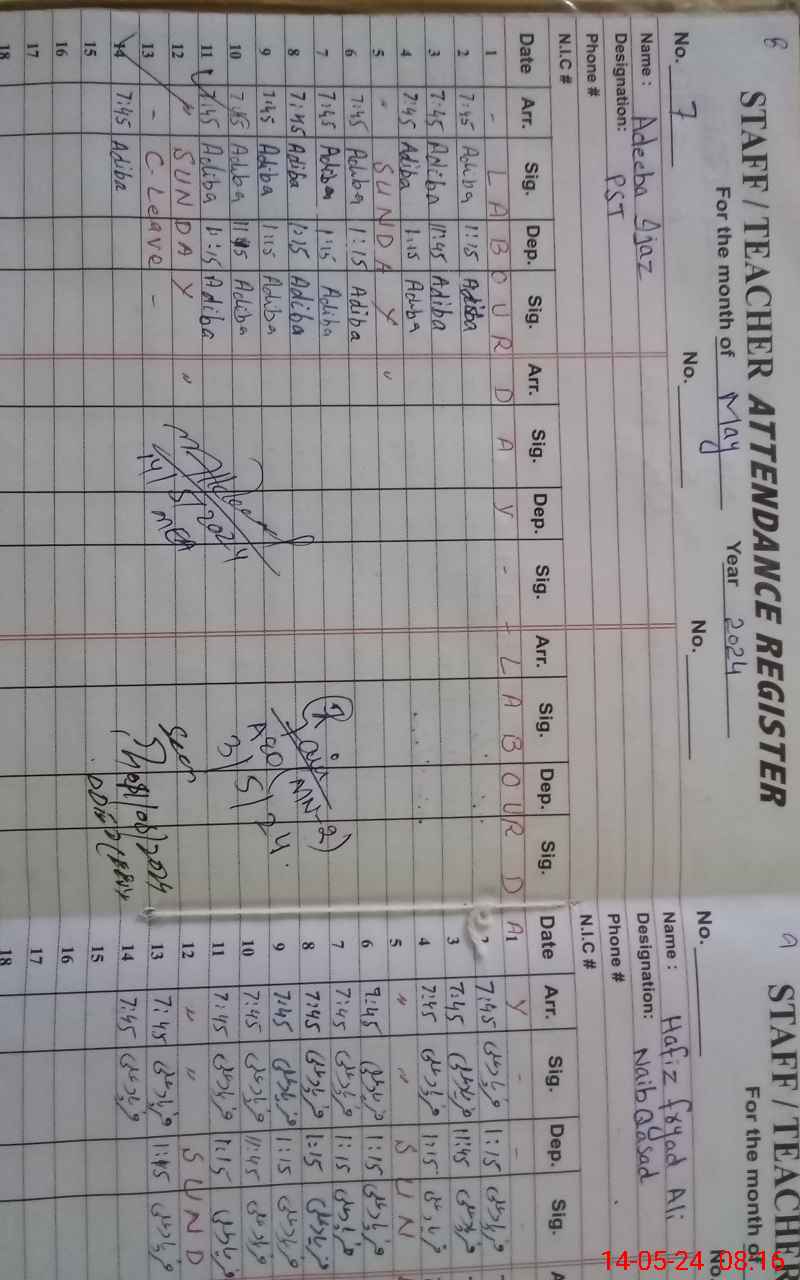 8
STAFF / TEACHER ATTENDANCE REGISTER
For the month of May Year 2024
No. 7 No. No.
Name : Adeeba Ijaz
Designation: PST
Phone #
N.I.C #
Date Arr. Sig. Dep. Sig. Arr. Sig. Dep. Sig. Arr. Sig. Dep. Sig.
1 - L A B O U R D A Y - - L A B O U R D A Y
2 7:45 Adiba 1:15 Adiba
3 7:45 Adiba 11:45 Adiba
4 7:45 Adiba 1:15 Adiba
5 " S U N D A Y "
6 7:45 Adiba 1:15 Adiba
7 7:45 Adiba 1:15 Adiba
8 7:45 Adiba 1:15 Adiba
9 7:45 Adiba 1:15 Adiba
10 7:45 Adiba 11:45 Adiba
11 7:45 Adiba 1:15 Adiba
12 " S U N D A Y "
13 - C. Leave -
14 7:45 Adiba
15
16
17
18
14/5/2024
MEA
3/5/24
Seen
9
STAFF / TEACHER
For the month of
No. No
Name : Hafiz fryad Ali
Designation: Naib Qasad
Phone #
N.I.C #
Date Arr. Sig. Dep. Sig. A
1
2 7:45 فریاد علی 1:15 فریاد علی
3 7:45 فریاد علی 11:45 فریاد علی
4 7:45 فریاد علی 1:15 فریاد علی
5 " " S U N
6 7:45 فریاد علی 1:15 فریاد علی
7 7:45 فریاد علی 1:15 فریاد علی
8 7:45 فریاد علی 1:15 فریاد علی
9 7:45 فریاد علی 1:15 فریاد علی
10 7:45 فریاد علی 11:45 فریاد علی
11 7:45 فریاد علی 1:15 فریاد علی
12 " " S U N D
13 7:45 فریاد علی 1:45 فریاد علی
14 7:45 فریاد علی
15
16
17
18
14-05-24 08:16